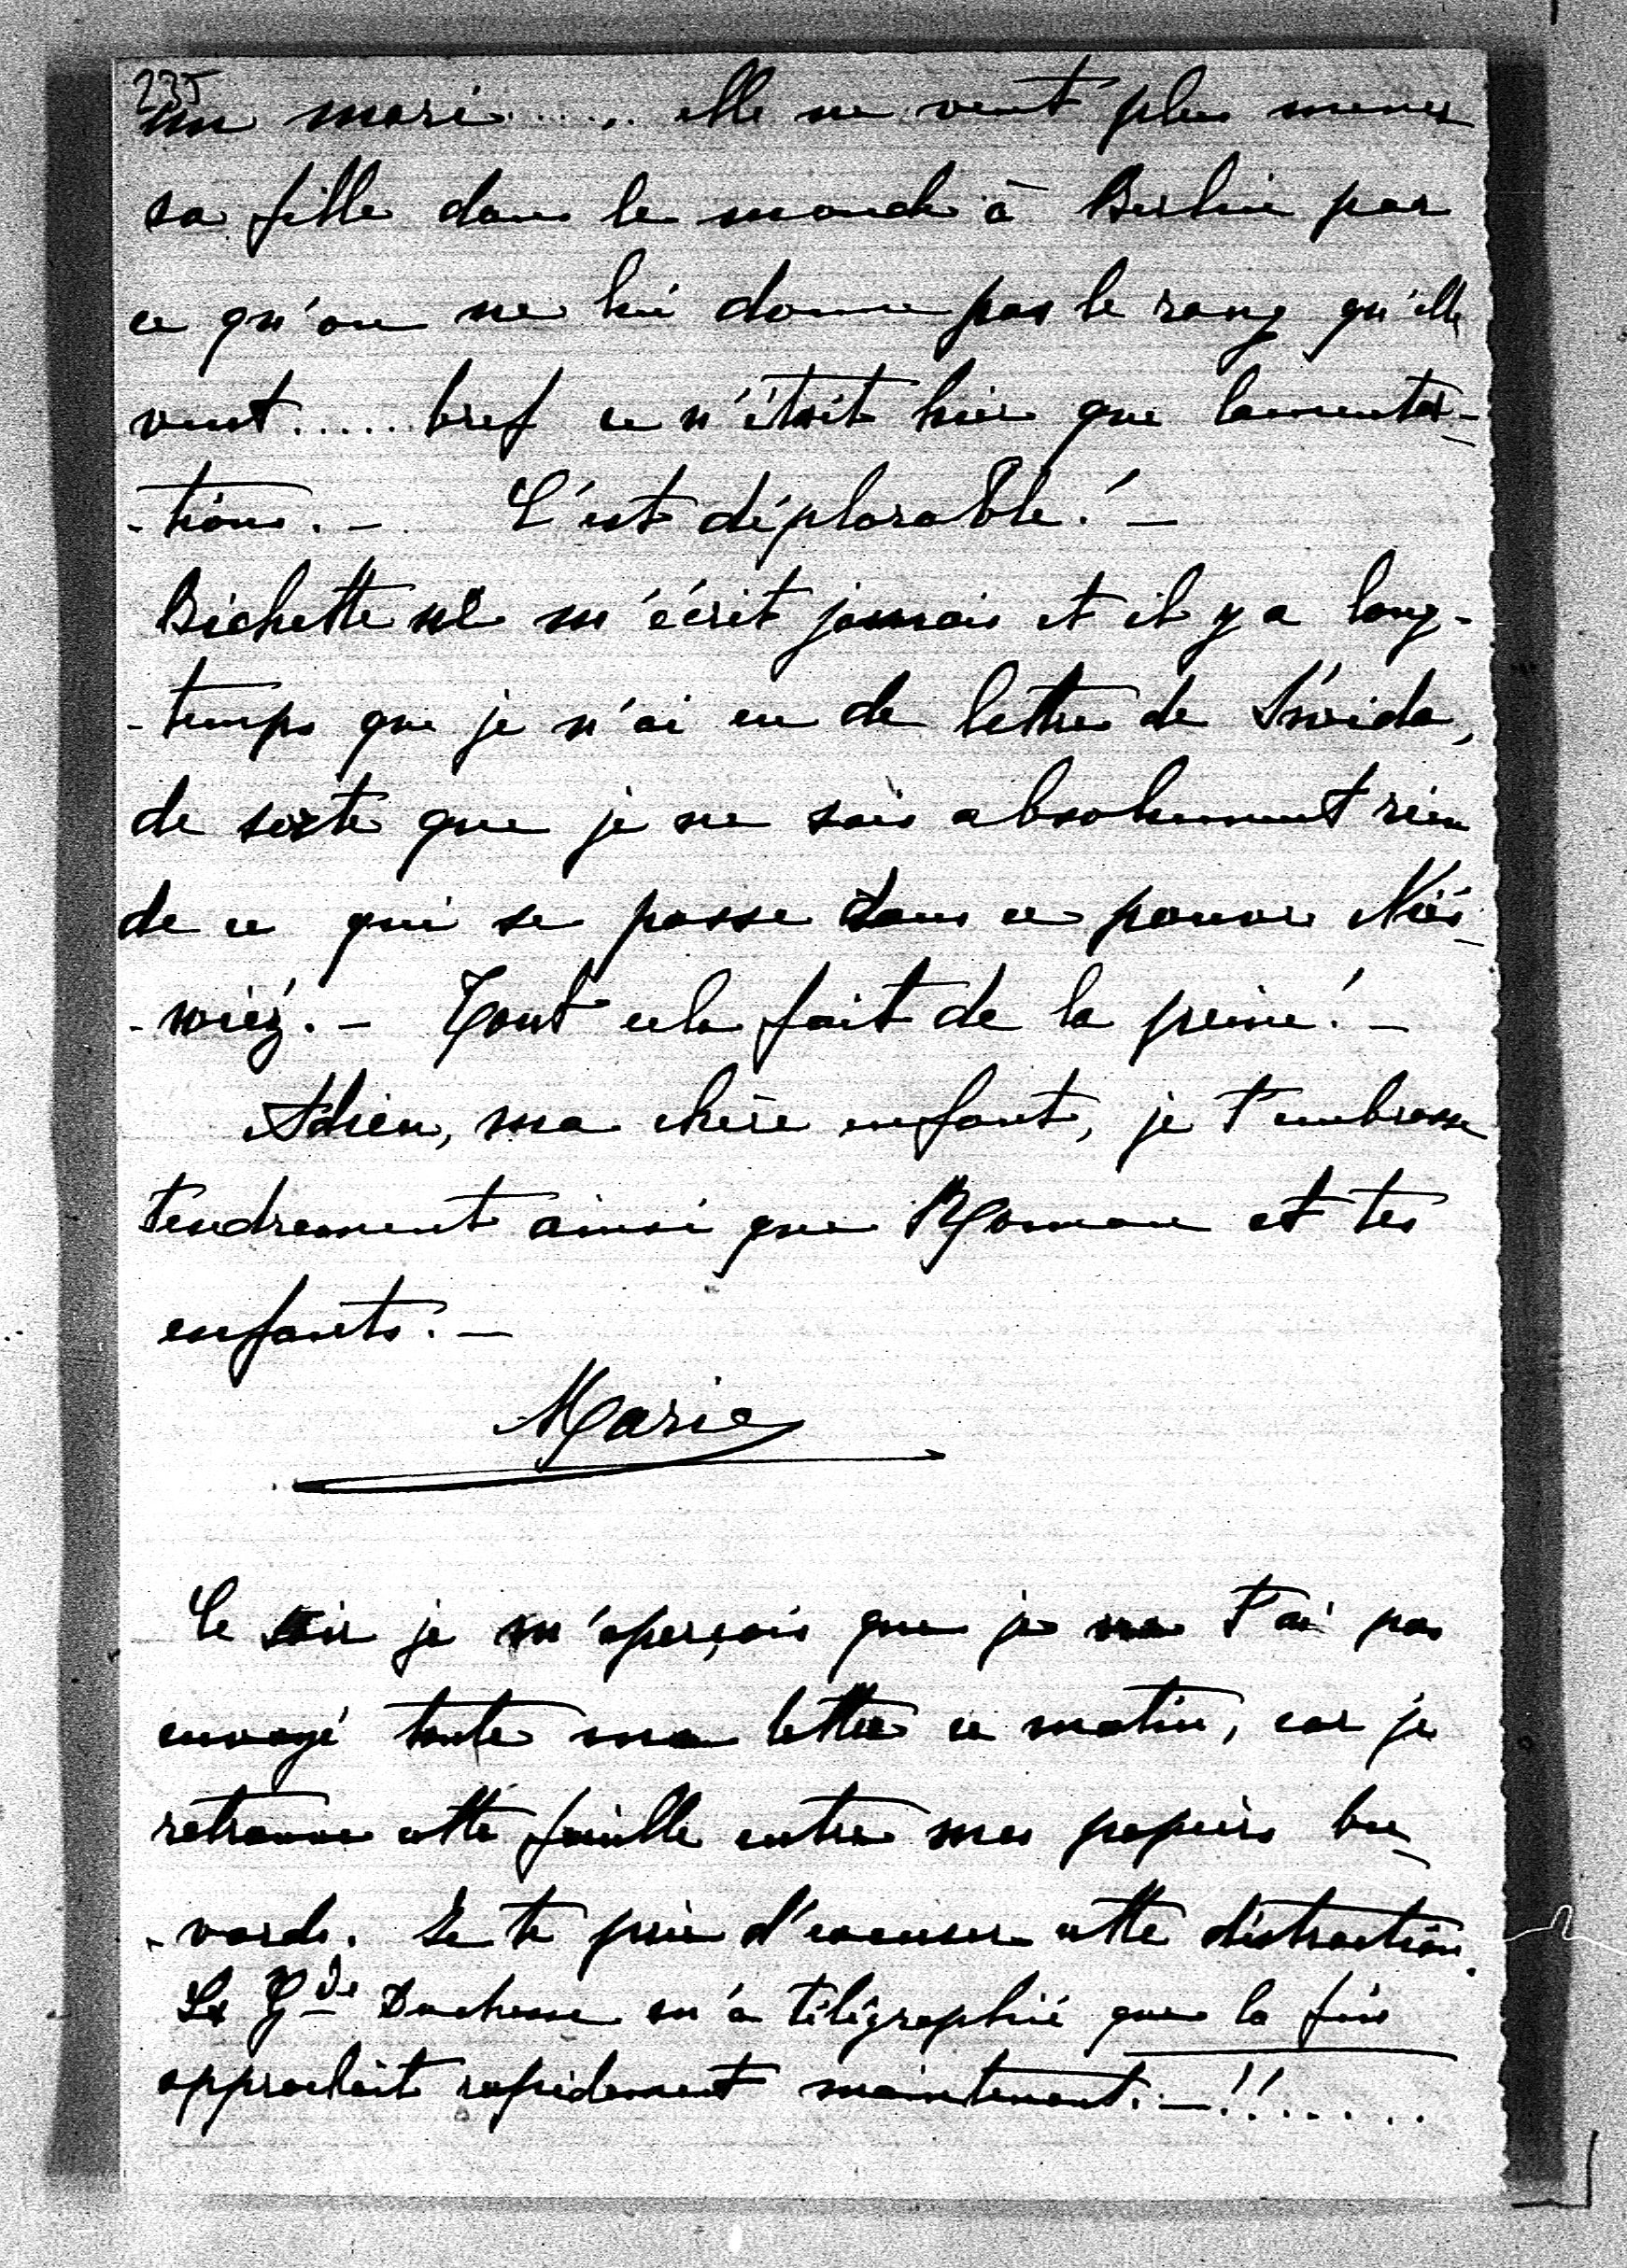 235
un mari...... elle ne veut plus mener
sa fille dans le monde à Berlin par
ce qu'on ne lui donne pas le rang qu'elle
veut..... bref ce n'était hier que lamenta-
-tions. - C'est déplorable! -
Bichette ne m'écrit jamais et il y a long-
-temps que je n'ai eu de lettre de
de sorte que je ne sais absolument rien
de ce qui se passe dans ce pauvre Niés-
-wiéz. - Tout cela fait de la peine! -
Adieu, ma chère enfant, je t'embrasse
tendrement ainsi que Roman et tes
enfants. -
Marie
Ce soir je m'aperçois que je ne t'ai pas
envoyé toute ma lettre ce matin, car je
retrouve cette feuille entre mes papiers bu-
-vards. Je te prie d'excuser cette distraction.
La Gde Duchesse m'a télégraphié que la fin
approchait rapidement maintenant. - !!......